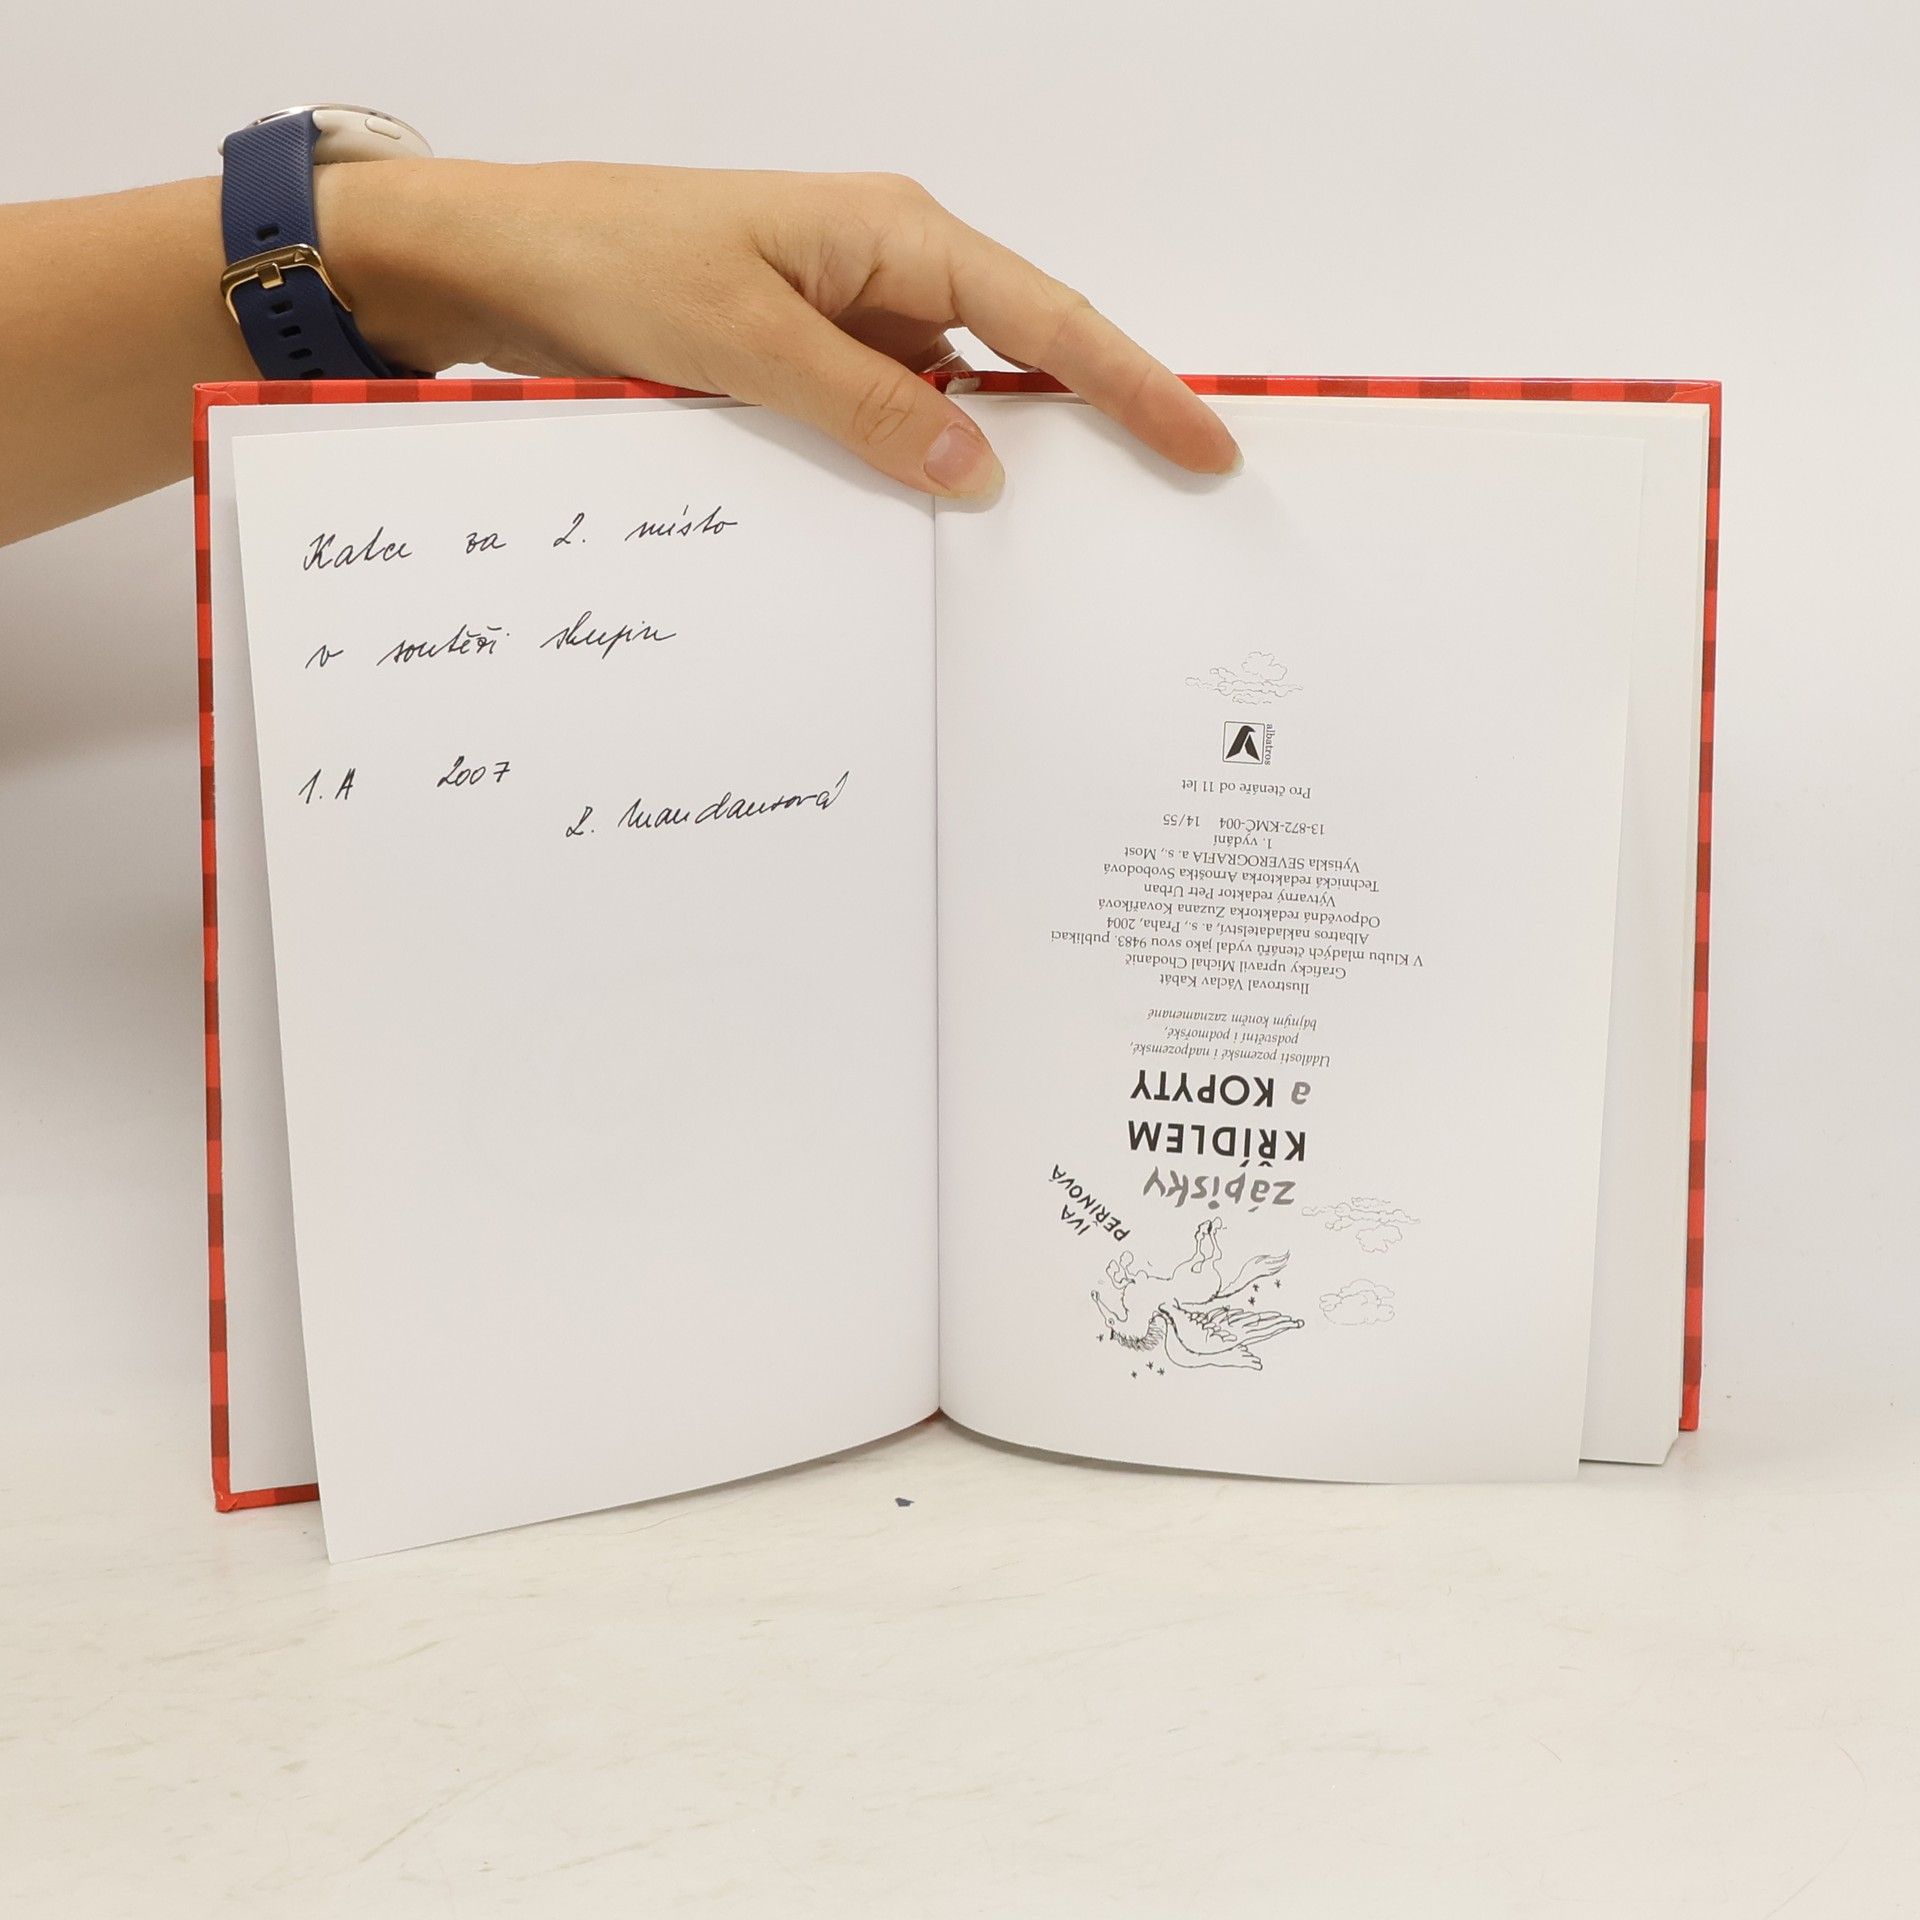 Katce za 2. místo
v soutěži skupin
1. A 2007
IVA
PEŘINOVÁ
zápisky
KŘÍDLEM
a KOPYTY
Události pozemské i nadpozemské,
podsvětní i podmořské,
bájným koněm zaznamenané
Ilustroval Václav Kabát
Graficky upravil Michal Chodanič
V Klubu mladých čtenářů vydal jako svou 9483. publikaci
Albatros nakladatelství, a. s., Praha, 2004
Odpovědná redaktorka Zuzana Kovaříková
Výtvarný redaktor Petr Urban
Technická redaktorka Arnoštka Svobodová
Vytiskla SEVEROGRAFIA a. s., Most
1. vydání
13-872-KMČ-004 14/55
Pro čtenáře od 11 let
albatros